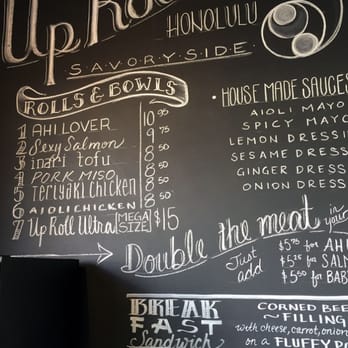 Up Ro
HONOLULU
SAVORY SIDE
ROLLS & BOWLS
1 AHI LOVER 10 95
2 Sexy Salmon 9 75
3 inari tofu 8 50
4 PORK MISO 8 50
5 Teriyaki chicken 8 50
6 AIOLI CHICKEN 8 50
7 Up Roll Ultra MEGA SIZE $15
· HOUSE MADE SAUCES
AIOLI MAYO
SPICY MAYO
LEMON DRESSI
SESAME DRESSI
GINGER DRESSI
ONION DRESSI
Double the meat in your
Just add
$5.75 for AH
$5.25 for SALM
$5.50 for BAB
BREAK
FAST
Sandwich
CORNED BEE
~ FILLING
with cheese, carrot, onion
on a FLUFFY